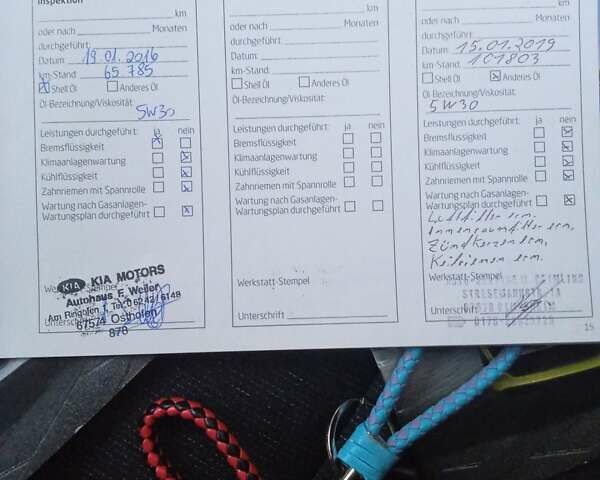 Inspektion
km
oder nach Monaten
durchgeführt:
Datum: 19.01.2016
km-Stand: 65.785
Shell Öl Anderes Öl
Öl-Bezeichnung/Viskosität:
5W30
Leistungen durchgeführt: ja nein
Bremsflüssigkeit
Klimaanlagenwartung
Kühlflüssigkeit
Zahnriemen mit Spannrolle
Wartung nach Gasanlagen-
Wartungsplan durchgeführt
KIA KIA MOTORS
Autohaus F. Weiler
Am Ringofen 1, Tel. 0 62 42 / 6149
67574 Osthofen
870
Unterschrift
km
oder nach Monaten
durchgeführt:
Datum:
km-Stand:
Shell Öl Anderes Öl
Öl-Bezeichnung/Viskosität:
Leistungen durchgeführt: ja nein
Bremsflüssigkeit
Klimaanlagenwartung
Kühlflüssigkeit
Zahnriemen mit Spannrolle
Wartung nach Gasanlagen-
Wartungsplan durchgeführt
Werkstatt-Stempel
Unterschrift
km
oder nach Monaten
durchgeführt:
Datum: 15.01.2019
km-Stand: 101803
Shell Öl Anderes Öl
Öl-Bezeichnung/Viskosität:
5W30
Leistungen durchgeführt: ja nein
Bremsflüssigkeit
Klimaanlagenwartung
Kühlflüssigkeit
Zahnriemen mit Spannrolle
Wartung nach Gasanlagen-
Wartungsplan durchgeführt
Luftfilter ern.
Innenraumfilter ern.
Zündkerzen ern.
Keilriemen ern.
Werkstatt-Stempel
Unterschrift
15